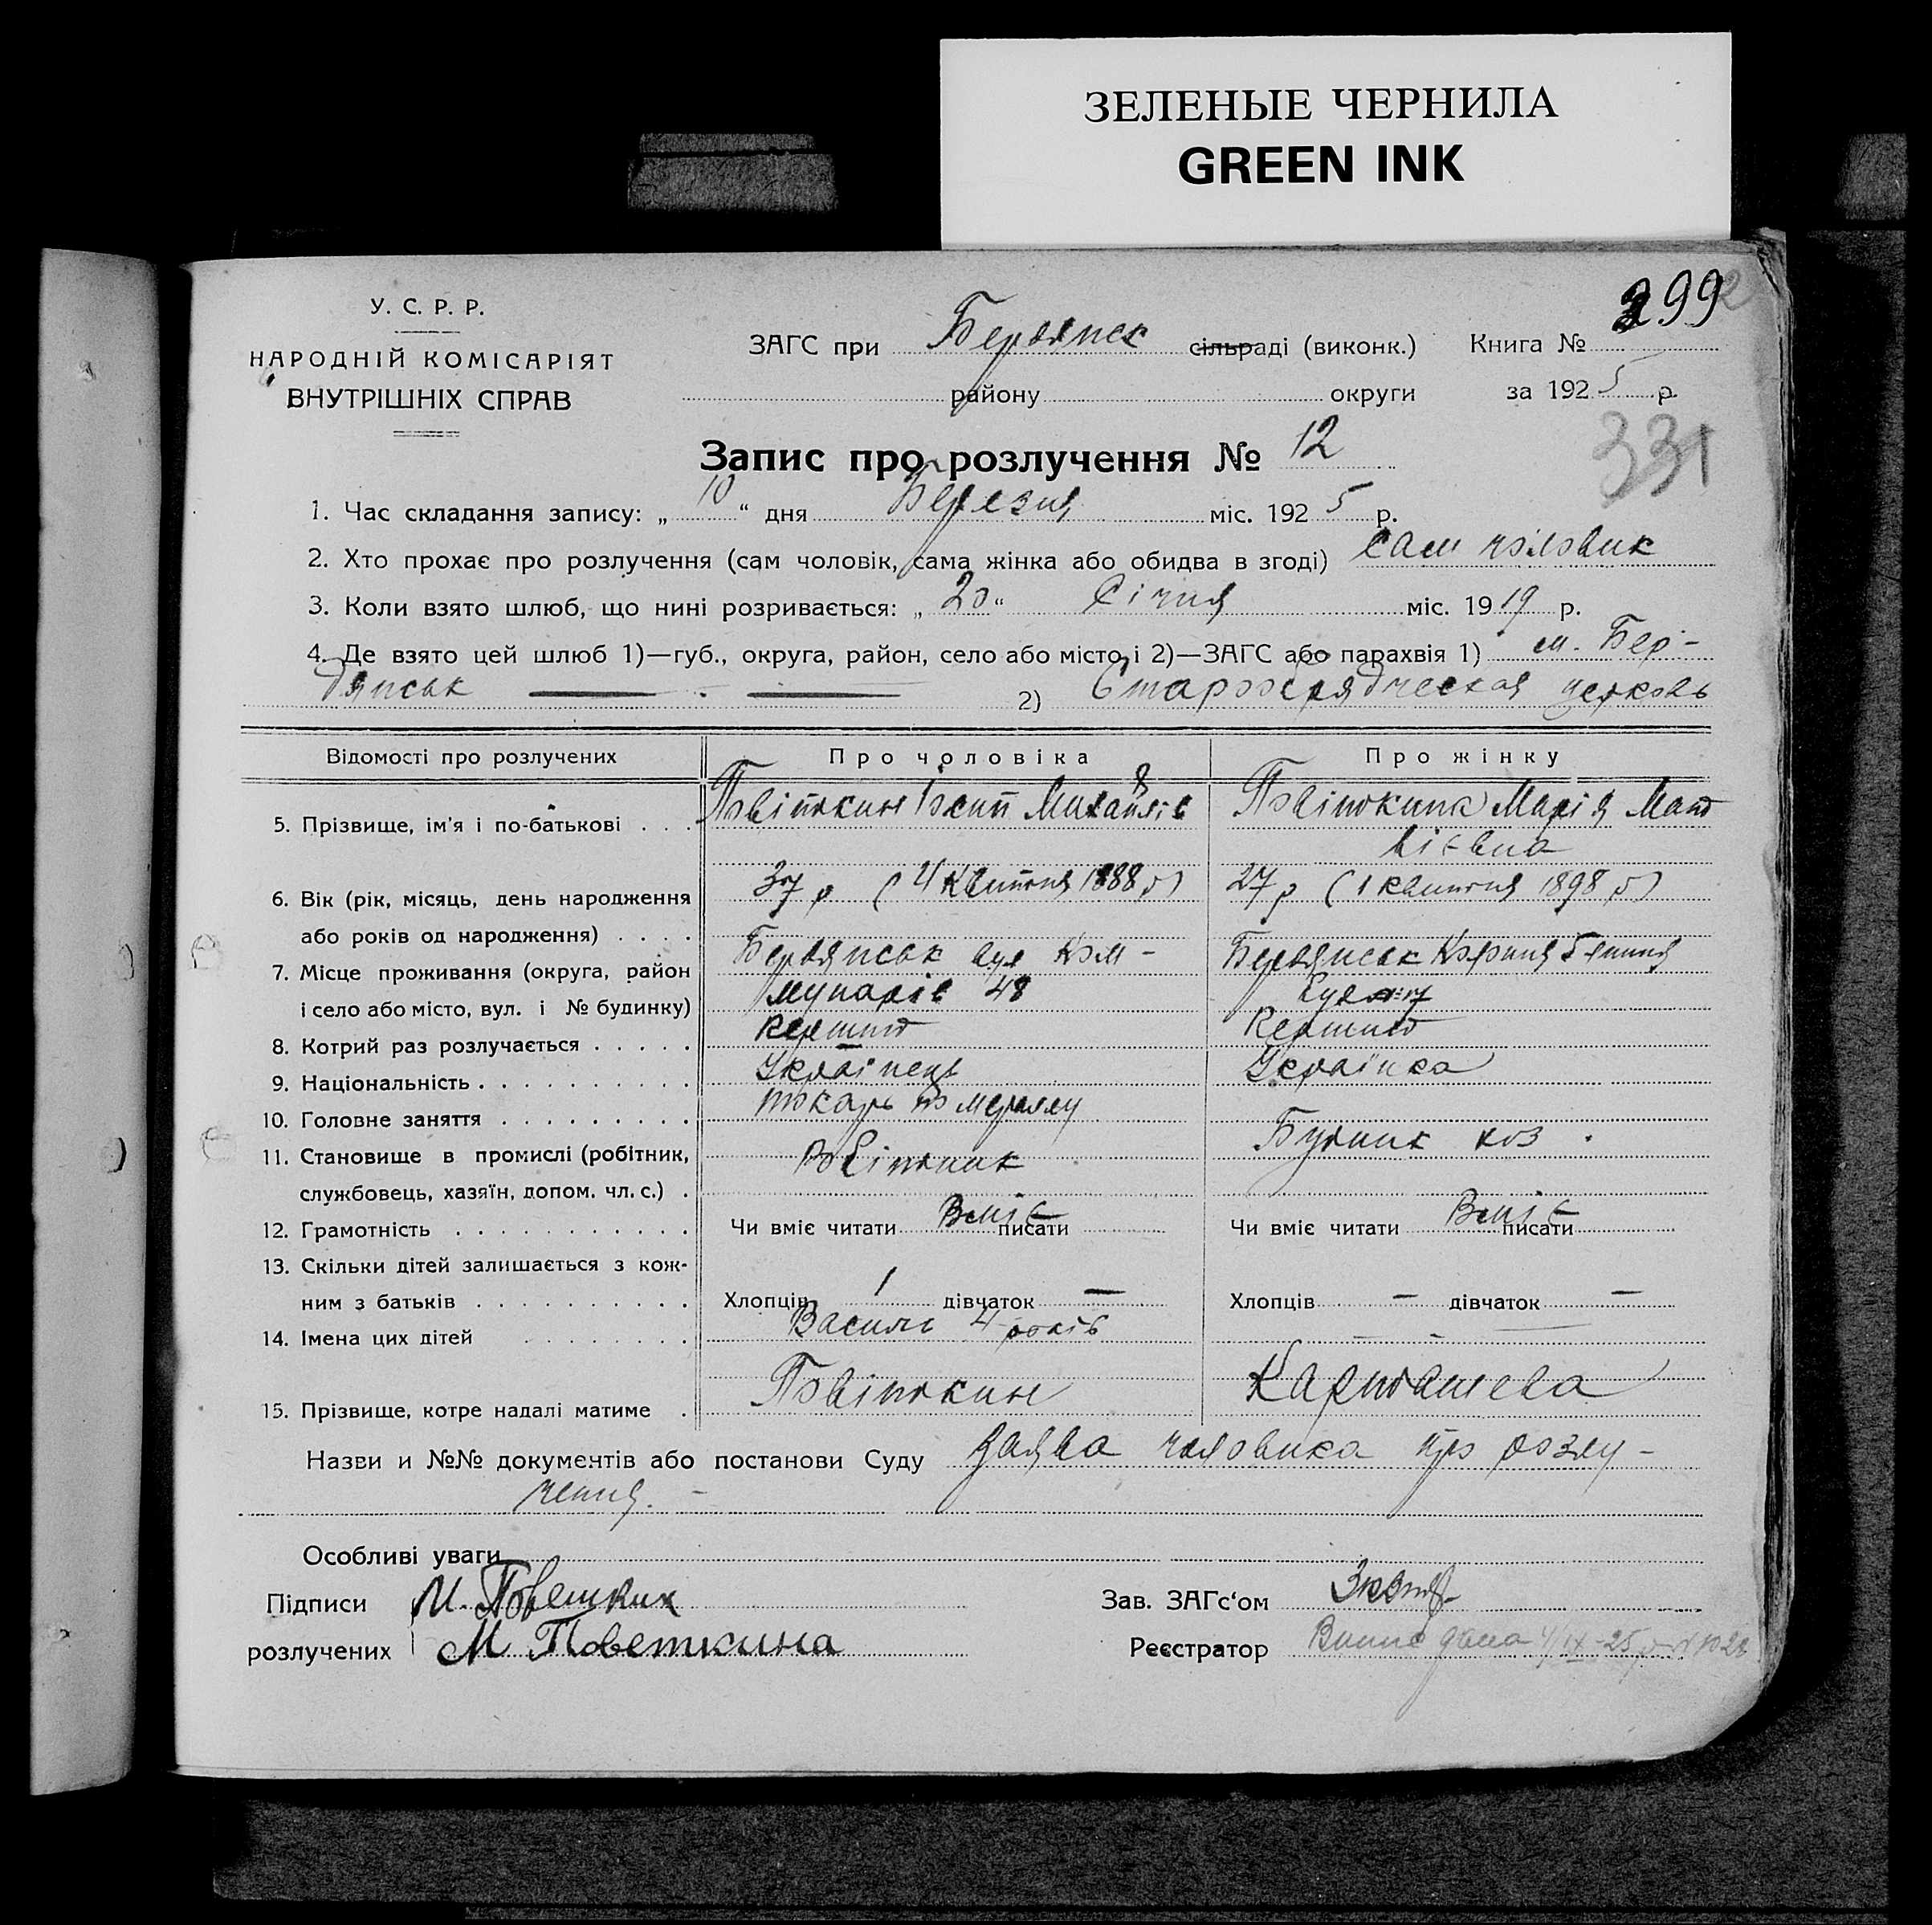 ЗЕЛЕНЫЕ ЧЕРНИЛА
GREEN INK
299
У. С. Р. Р.
НАРОДНІЙ КОМІСАРІЯТ
ВНУТРІШНІХ СПРАВ
ЗАГС при Бердянск сільраді (виконк.) Книга №
району округи за 1925 р.
331
Запис про розлучення № 12
1. Час складання запису: „10“ дня Березня міс. 1925 р.
2. Хто прохає про розлучення (сам чоловік, сама жінка або обидва в згоді) сам чоловик
3. Коли взято шлюб, що нині розривається: „20“ Січня міс. 1919 р.
4. Де взято цей шлюб 1)—губ., округа, район, село або місто, і 2)—ЗАГС або парахвія 1) м. Бер-
дянськ 2) Старообрядческая церковь
Відомості про розлучених Про чоловіка Про жінку
5. Прізвище, ім'я і по-батькові Повіткин Михайлів Повіткина Марія Мат
вієвна
6. Вік (рік, місяць, день народження 37 р (4 Квітня 1888 р) 27 р (1 квитня 1898 р)
або років од народження)
7. Місце проживання (округа, район Бердянськ вул Ком- Бердянськ
і село або місто, вул. і № будинку) мунарів 48
8. Котрий раз розлучається Перший Перший
9. Національність Українець Українка
10. Головне заняття токарь по металу
11. Становище в промислі (робітник, Робітник
службовець, хазяїн, допом. чл. с.)
12. Грамотність Чи вміє читати Вміє писати Чи вміє читати Вміє писати
13. Скільки дітей залишається з кож-
ним з батьків Хлопців 1 дівчаток — Хлопців — дівчаток —
14. Імена цих дітей Василь 4 років — —
15. Прізвище, котре надалі матиме Повіткин Карташева
Назви и №№ документів або постанови Суду Заява чоловика про розлу-
чення. –
Особливі уваги
Підписи М. Поветкин Зав. ЗАГс‘ом
розлучених М Поветкина Реєстратор